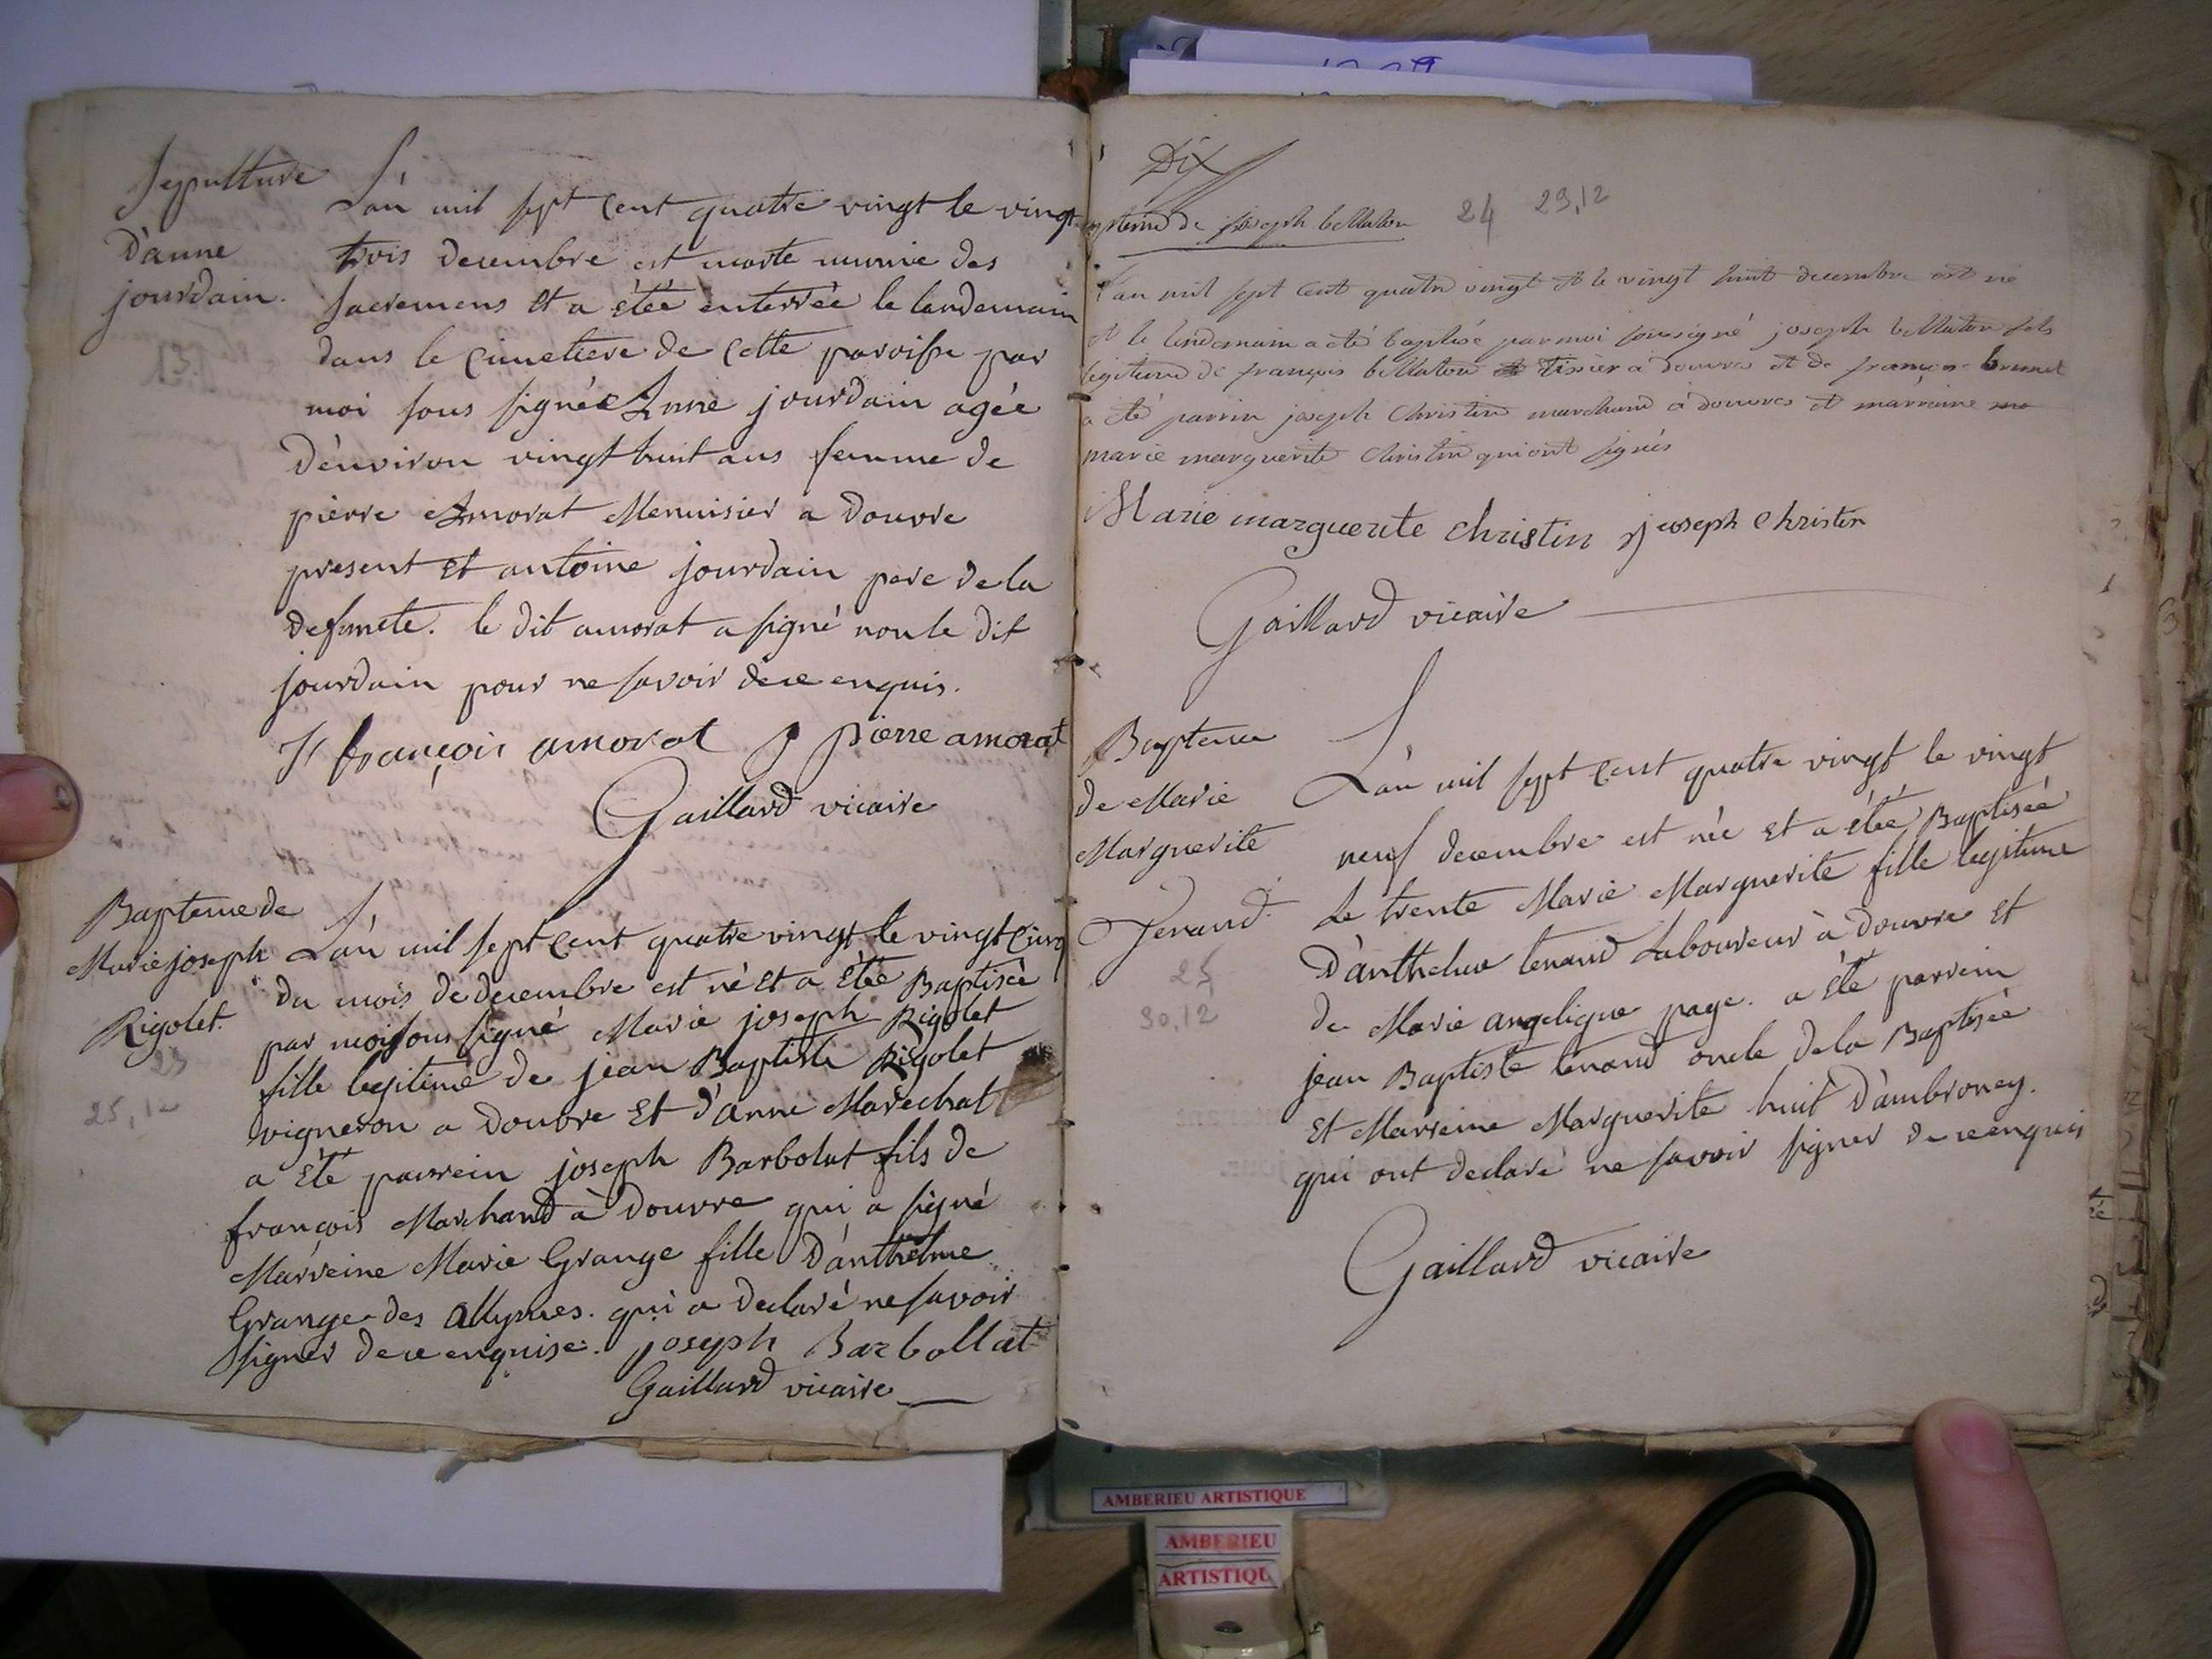 Sepulture
D'anne
jourdain.
L'an mil sept cent quatre vingt le vingt
trois decembre est morte munie des
sacremens et a étée enterrée le lendemain
dans le cimetiere de cette paroisse par
moi sous signée Anne jourdain agée
d'environ vingt huit ans femme de
pierre Amorat Menuisier a Douvre
present et antoine jourdain pere de la
defunete. le dit amorat a signé non le dit
jourdain pour ne savoir de ce enquis.
françois amorat pierre amorat
Gaillard vicaire
Bapteme de
Marie joseph
Rigolet.
23
25,12
L'an mil sept cent quatre vingt le vingt cinq
du mois de decembre est né et a étée Baptisée
par moi sous signé Marie joseph Rigolet
fille legitime de jean Baptiste Rigolet
vigneron a Douvre et d'anne Marechal
a été parrein joseph Barbolat fils de
françois Marchand à Douvre qui a signé
Marreine Marie Grange fille D'anthelme
Grange des Allymes. qui a declaré ne savoir
signer de ce enquise. joseph Barbollat
Gaillard vicaire
Dix
bapteme de joseph bellaton 24 29,12
L'an mil sept cent quatre vingt et le vingt huit decembre est né
et le lendemain a été baptisé par moi soussigné joseph bellaton fils
legitime de françois bellaton tissier a douvres et de françoise brunet
a été parrin joseph Christin marchand a douvres et marraine
marie marguerite Christin qui ont signés
Marie marguerite christin joseph christin
Gaillard vicaire
Bapteme
de Marie
Marguerite
Tenand.
25
30,12
L'an mil sept cent quatre vingt le vingt
neuf decembre est née et a étée Baptisée
Le trente Marie Marguerite fille legitime
D'anthelme tenand Laboureur à Douvre et
de Marie angelique page. a été parrein
jean Baptiste tenand oncle de la Baptisée
et Marreine Marguerite huit D'ambronay.
qui ont declaré ne savoir signer de ce enquis
Gaillard vicaire
AMBERIEU ARTISTIQUE
AMBERIEU
ARTISTIQU